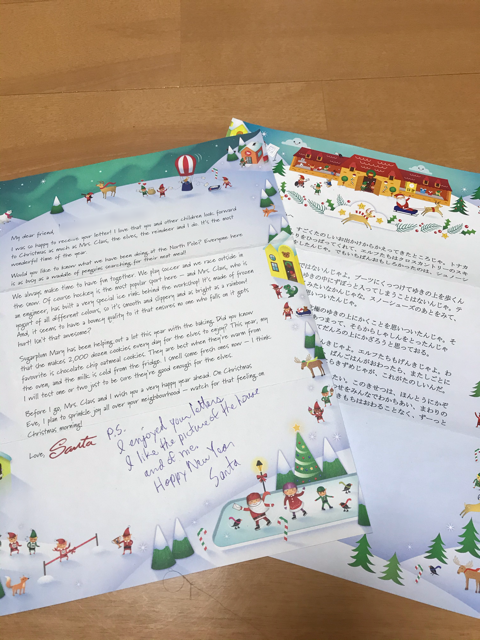 My dear friend,
I was so happy to receive your letter! I love that you and other children look forward
to Christmas as much as Mrs. Claus, the elves, the reindeer and I do. It's the most
wonderful time of the year.
Would you like to know what we have been doing at the North Pole? Everyone here
is as busy as a waddle of penguins searching for their next meal!
We always make time to have fun together. We play soccer and we race outside in
the snow. Of course hockey is the most popular sport here — and Mrs. Claus, who is
an engineer, has built a very special ice rink behind the workshop! It's made of frozen
yogurt of all different colours, so it's smooth and slippery and as bright as a rainbow!
And, it seems to have a bouncy quality to it that ensures no one who falls on it gets
hurt! Isn't that awesome?
Sugarplum Mary has been helping out a lot this year with the baking. Did you know
that she makes 2,000 dozen cookies every day for the elves to enjoy? This year, my
favorite is chocolate chip oatmeal cookies. They are best when they're warm from
the oven, and the milk is cold from the fridge. I smell some fresh ones now – I think
I will test one or two just to be sure they're good enough for the elves.
Before I go, Mrs. Claus and I wish you a very happy year ahead. On Christmas
Eve, I plan to sprinkle joy all over your neighbourhood – watch for that feeling on
Christmas morning!
Love, Santa
P.S.
I enjoyed your letters.
I like the picture of the house
and of me.
Happy New Year
Santa
すごくたのしいお出かけからかえってきたところじゃ。トナカ
りをひっぱってくれて、エルフたちはクリスマスツリーのスキ
ゆきの中にずぼっと入ってしまうことはないんじゃ。テ
みたいなかんじゃな。スノーシューズのあとをみて、
思いついたんじゃ。
のゆきの上にかくことを思いついたんじゃ。そ
がつまって、そらからしゃしんをとったんじゃ
ぞてんだろの上にかざろうと思っておる。
しきじゃよ。エルフたちもげんきじゃよ。わ
ばんごはんがおわったら、またしごとに
らきずめじゃが、これがたのしいんだ。
たい。このきせつは、ほんとうにかや
せをみんなでわかちあい、まわりの
きもちはおわることなく、ずーっと